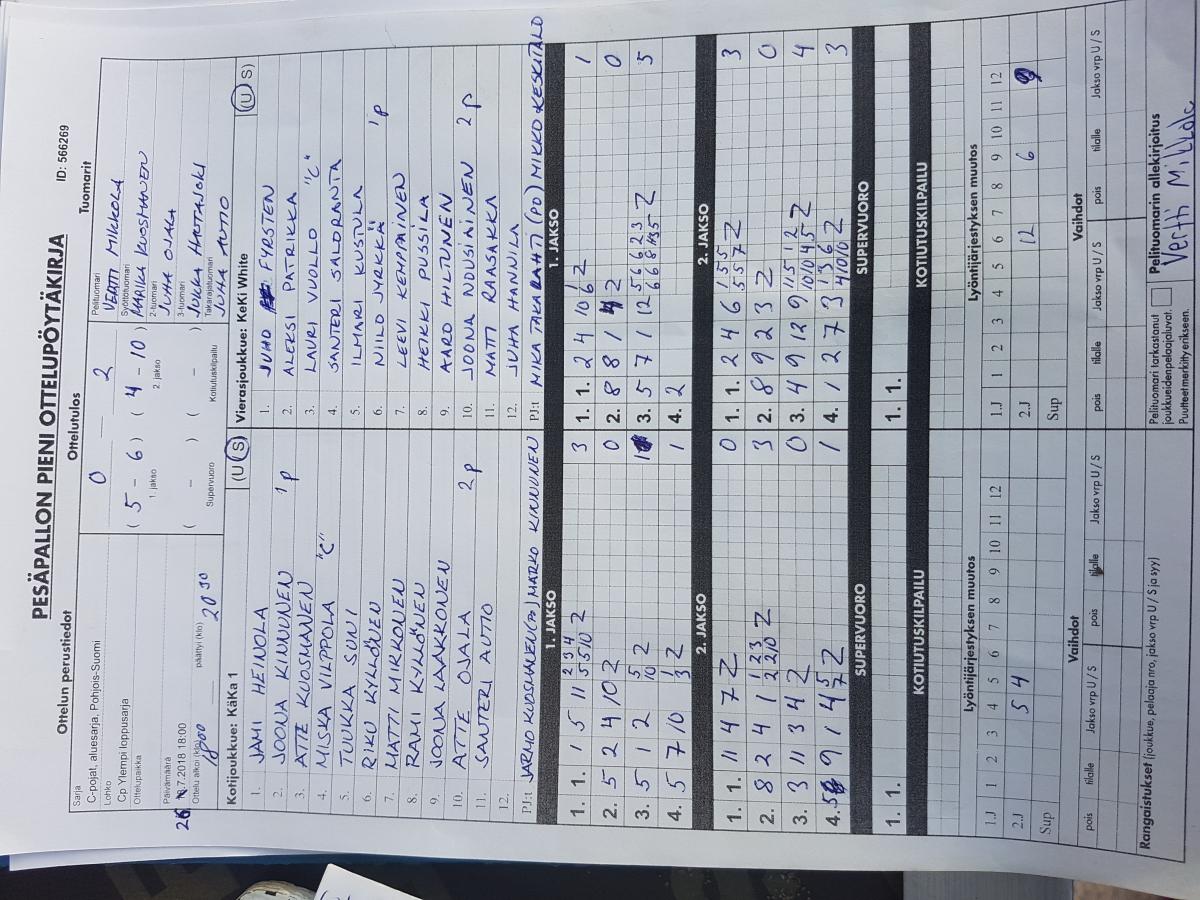 PESÄPALLON PIENI OTTELUPÖYTÄKIRJA
ID: 566269
Ottelun perustiedot
Ottelutulos
Tuomarit
Sarja
C-pojat, aluesarja, Pohjois-Suomi
Lohko
Cp Ylempi loppusarja
Ottelupaikka
Päivämäärä
.7.2018 18:00
Ottelu alkoi (klo)
1800
päättyi (klo)
2030
0 — 2
( 5 - 6 ) ( 4 - 10 )
1. jakso
2. jakso
( - ) ( - )
Supervuoro
Kotiutuskilpailu
Pelituomari
VERTTI MIKKOLA
Syöttötuomari
MARIKA KUOSMANEN
2-tuomari
JUHA OJALA
3-tuomari
JUKKA HAATAJOKI
Takarajatuomari
JUHA AUTIO
Kotijoukkue: KäKa 1
(U S)
1. JAMI HEINOLA
2. JOONA KINNUNEN 1p
3. ATTE KUOSMANEN
4. MISKA VILPPOLA "C"
5. TUUKKA SUNI
6. RIKU KYLLÖNEN
7. MATTI MIRKONEN
8. RAMI KYLLÖNEN
9. JOONA LAAKKONEN
10. ATTE OJALA 2p
11. SANTERI AUTIO
12.
PJ:t JARMO KUOSMANEN MARKO KINNUNEN
Vierasjoukkue: KeKi White
(U S)
1. JUHO FYRSTEN
2. ALEKSI PATRIKKA
3. LAURI VUOLLO "C"
4. SANTERI SALORANTA
5. ILMARI KUSTULA
6. NIILO JYRKKÄ 1p
7. LEEVI KEMPPAINEN
8. HEIKKI PUSSILA
9. AARO HILTUNEN
10. JOONA NOUSIAINEN 2p
11. MATTI RAASAKKA
12. JUHA HANNILA
PJ:t MIKA TAKALAHTI (PD) MIKKO KESKITALO
1. JAKSO
1. 1. 1 5 11 2 3 4 5 5 10 2 3
2. 5 2 4 10 2 0
3. 5 1 2 5 10 2 1
4. 5 7 10 1 3 2 1
2. JAKSO
1. 1. 11 4 7 2 0
2. 8 2 4 1 1 2 3 2 2 10 2 3
3. 3 11 3 4 2 0
4. 9 1 4 4 5 7 2 1
SUPERVUORO
1. 1.
KOTIUTUSKILPAILU
1. JAKSO
1. 1. 2 4 10 1 6 2 1
2. 8 8 1 2 0
3. 5 7 1 12 5 6 6 2 3 2 5
4. 2
2. JAKSO
1. 1. 2 4 6 1 5 5 5 5 7 2 3
2. 8 9 2 3 2 0
3. 4 9 12 9 11 5 1 2 10 10 4 5 2 4
4. 1 2 7 3 1 3 6 4 10 10 2 3
SUPERVUORO
1. 1.
KOTIUTUSKILPAILU
Lyöntijärjestyksen muutos
1.J 1 2 3 4 5 6 7 8 9 10 11 12
2.J 5 4
Sup
Vaihdot
pois tilalle Jakso vrp U / S pois tilalle Jakso vrp U / S
Lyöntijärjestyksen muutos
1.J 1 2 3 4 5 6 7 8 9 10 11 12
2.J 12 6
Sup
Vaihdot
pois tilalle Jakso vrp U / S pois tilalle Jakso vrp U / S
Rangaistukset (joukkue, pelaaja nro, jakso vrp U / S ja syy)
Pelituomari tarkastanut
joukkueidenpelaajaluvat.
Puutteet merkitty erikseen.
Pelituomarin allekirjoitus
Vertti Mikkola